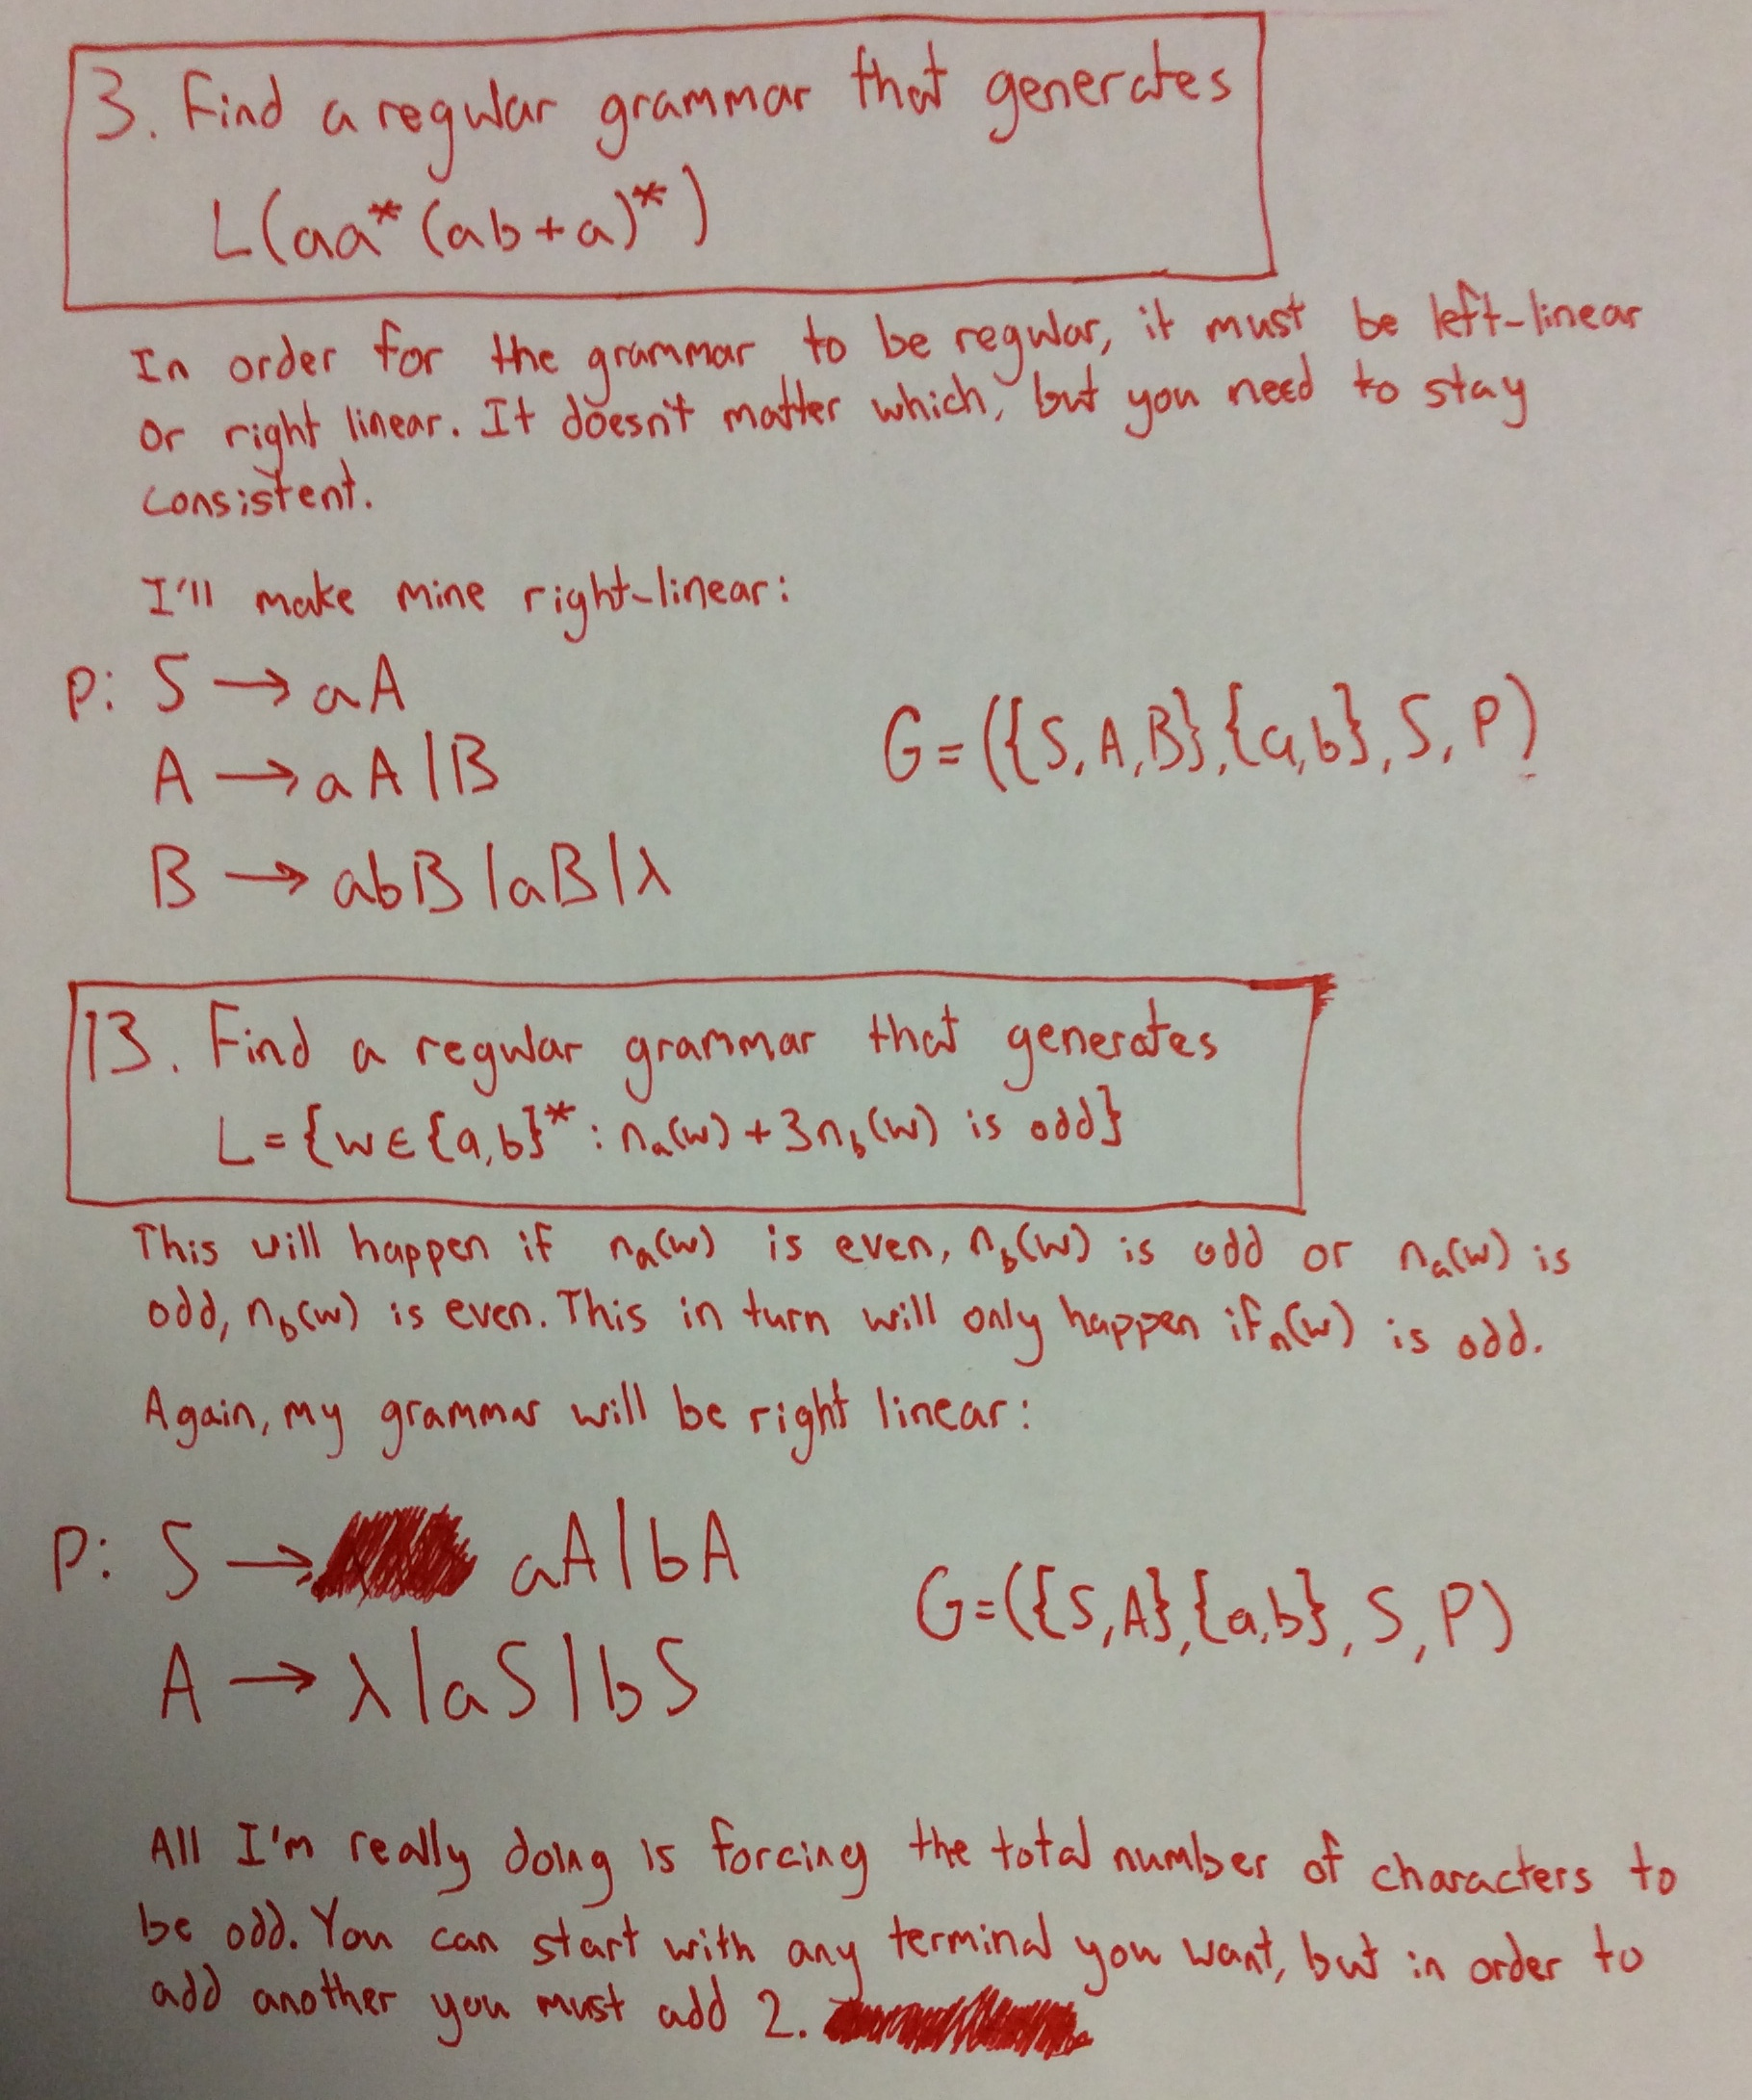 3. Find a regular grammar that generates
L(aa*(ab+a)*)
In order for the grammar to be regular, it must be left-linear
or right linear. It doesn't matter which, but you need to stay
consistent.
I'll make mine right-linear:
P: S → aA
A → aA|B
G=({S,A,B},{a,b},S,P)
B → abB|aB|λ
13. Find a regular grammar that generates
L={w∈{a,b}*:nₐ(w)+3n_b(w) is odd}
This will happen if nₐ(w) is even, n_b(w) is odd or nₐ(w) is
odd, n_b(w) is even. This in turn will only happen if n(w) is odd.
Again, my grammar will be right linear:
P: S → aA|bA
G=({S,A},{a,b},S,P)
A → λ|aS|bS
All I'm really doing is forcing the total number of characters to
be odd. You can start with any terminal you want, but in order to
add another you must add 2.